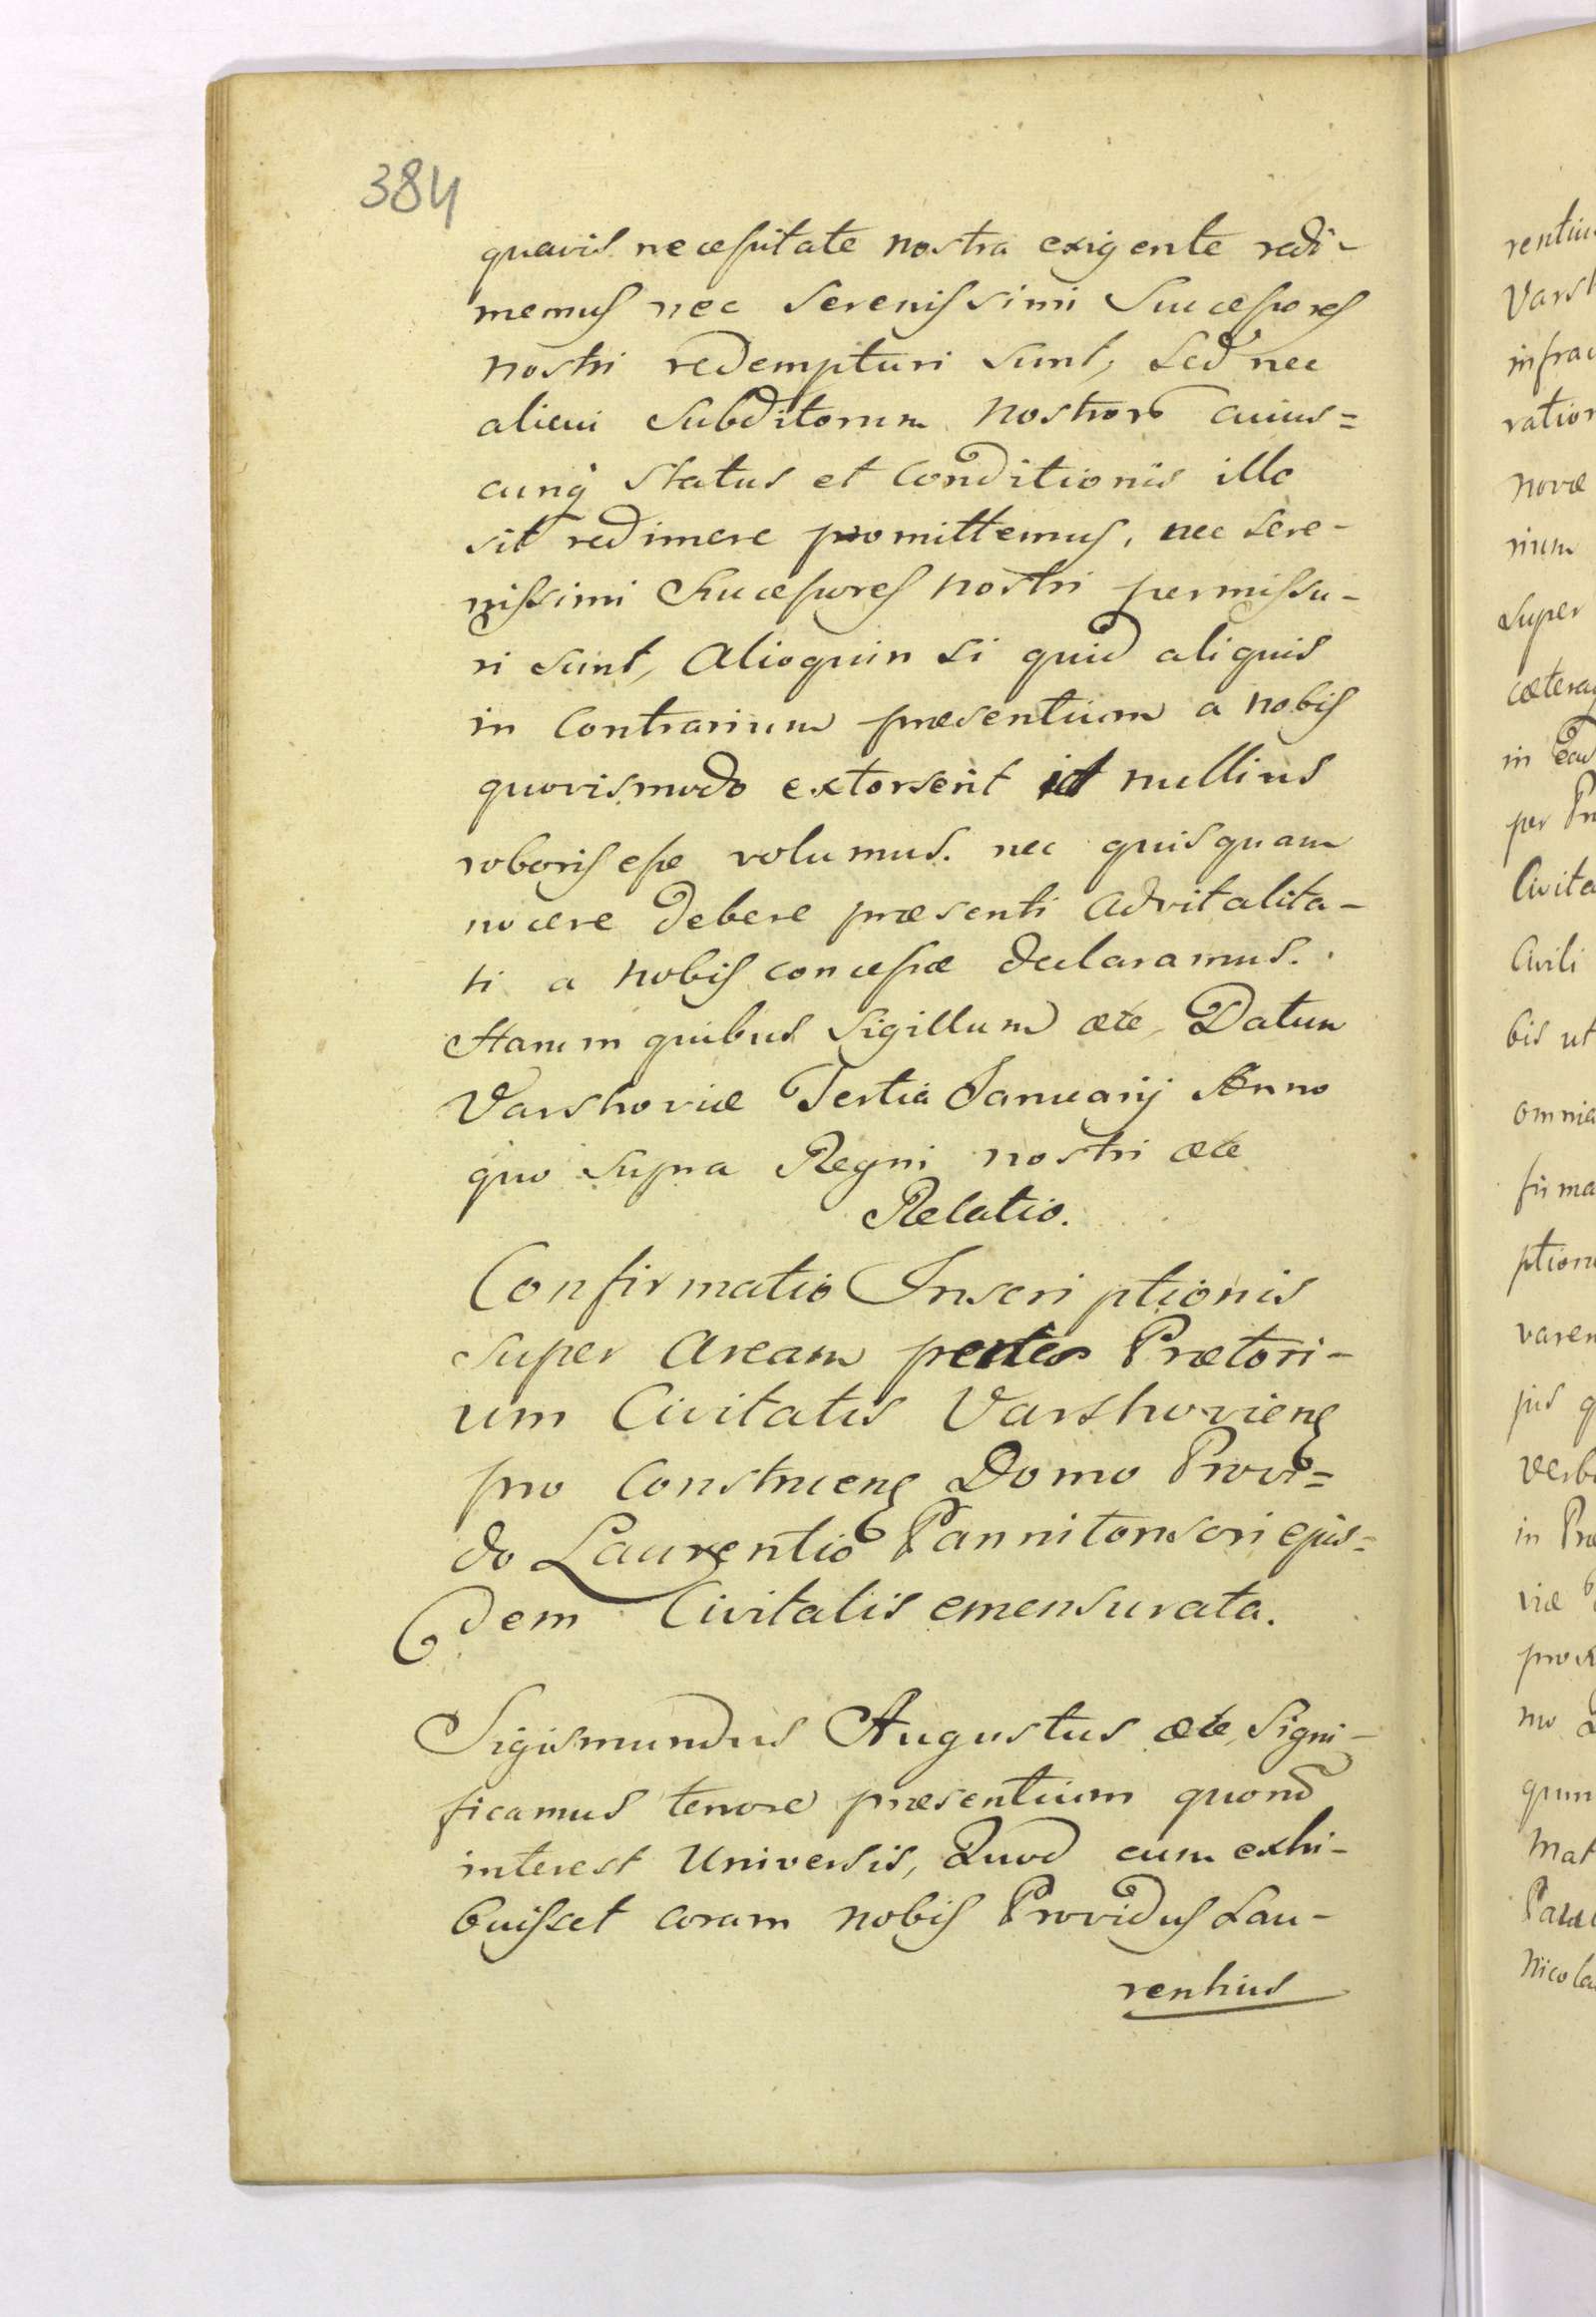 384
quavis necessitate nostra exigente redi-
memus nec Serenissimi Successores
nostri redempturi sunt, Sed nec
alicui Subditorum Nostror cuius=
cunq Status et Conditionis illo
sit redimere promittemus, nec Sere-
nissimi Successores nostri permissu-
ri sunt, Alioquin si quid aliquis
in Contrarium præsentium a nobis
quovismodo extorserit id nullius
roboris esse volumus. nec quisquam
nocere debere præsenti advitalita-
ti a nobis concessæ declaramus.
Harum quibus Sigillum etc, Datum
Varshoviæ Tertia Januarij Anno
quo supra Regni nostri etc
Relatio.
Confirmatio Inscriptionis
super Aream Prætori-
um Civitatis Varshoviens
pro Construens Domo Provi=
do Laurentio Pannitonsori ejus=
dem Civitatis emensurata.
Sigismundus Augustus etc, Signi-
ficamus tenore præsentium quorū
interest Universis, Quod cum exhi-
buisset coram nobis Providus Lau-
rentius
rentius
Varsh
infra
ration
novæ
rium
super
cæteraq
in Ead
per Pr
Civita
Civili
bis ut
omnia
firma
ption
varen
jus q
Verb
in Præ
viæ
prox
mo
quin
Mat
Nicola